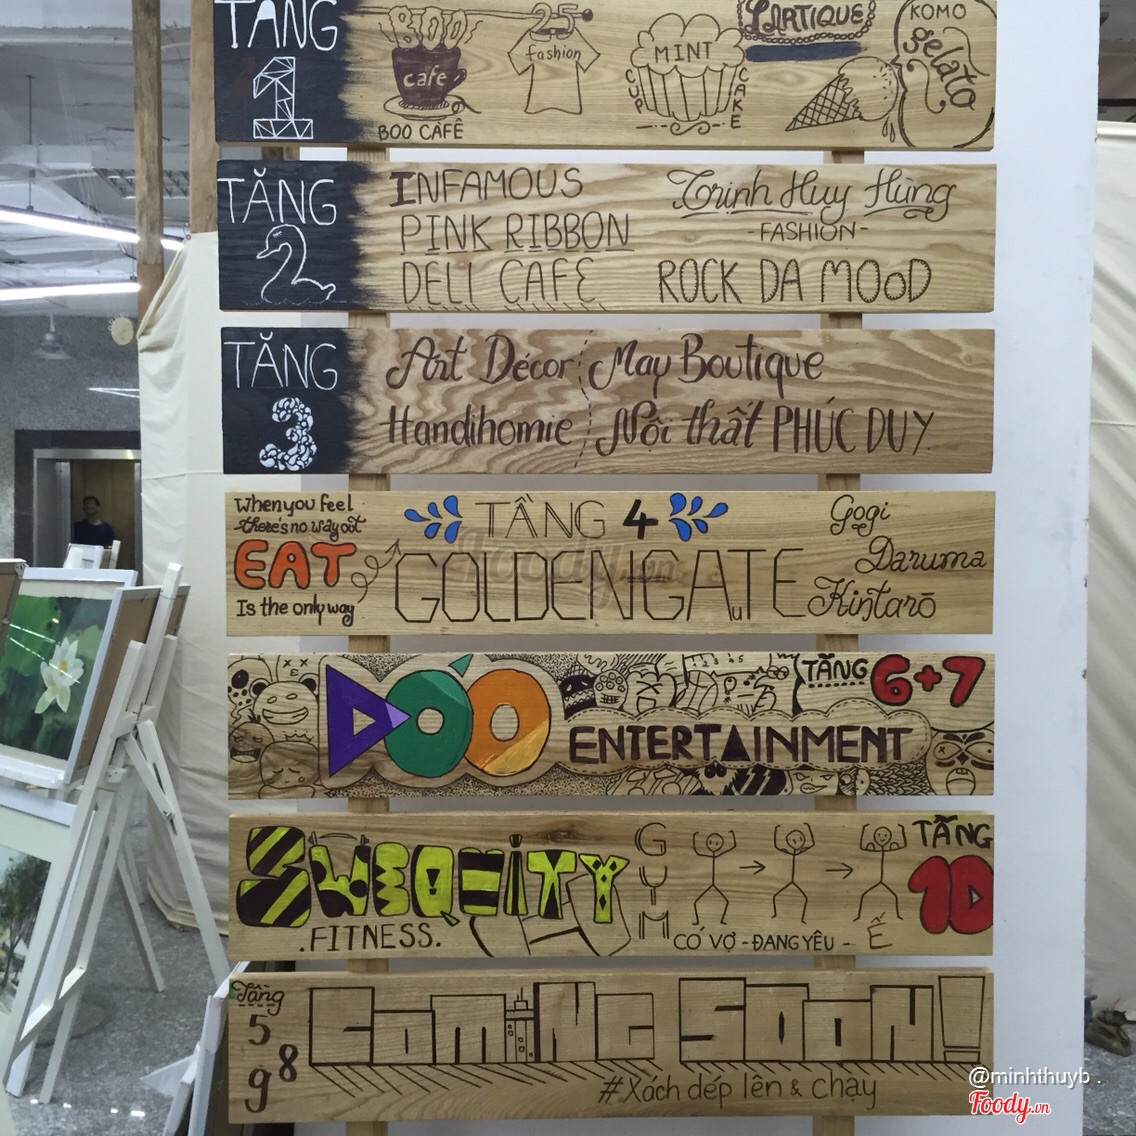 TẦNG
1
BOO
cafe
BOO CAFÊ
25
fashion
MINT
CUP
CAKE
L'ARTIQUE
KOMO
gelato
TẦNG
2
INFAMOUS
PINK RIBBON
DELI CAFE
Trịnh Huy Hùng
-FASHION-
ROCK DA MOOD
TẦNG
3
Art Décor
Handihomie
May Boutique
Nội thất PHÚC DUY
When you feel
there's no way out
EAT
Is the only way
TẦNG 4
GOLDENGATE
Gogi
Daruma
Kintarō
DOO
ENTERTAINMENT
TẦNG 6+7
FITNESS.
GYM
CÓ VỢ - ĐANG YÊU - Ế
TẦNG
10
Tầng
5
8
9
COMING SOON!
#Xách dép lên & chạy
@minhthuyb .
Foody.vn